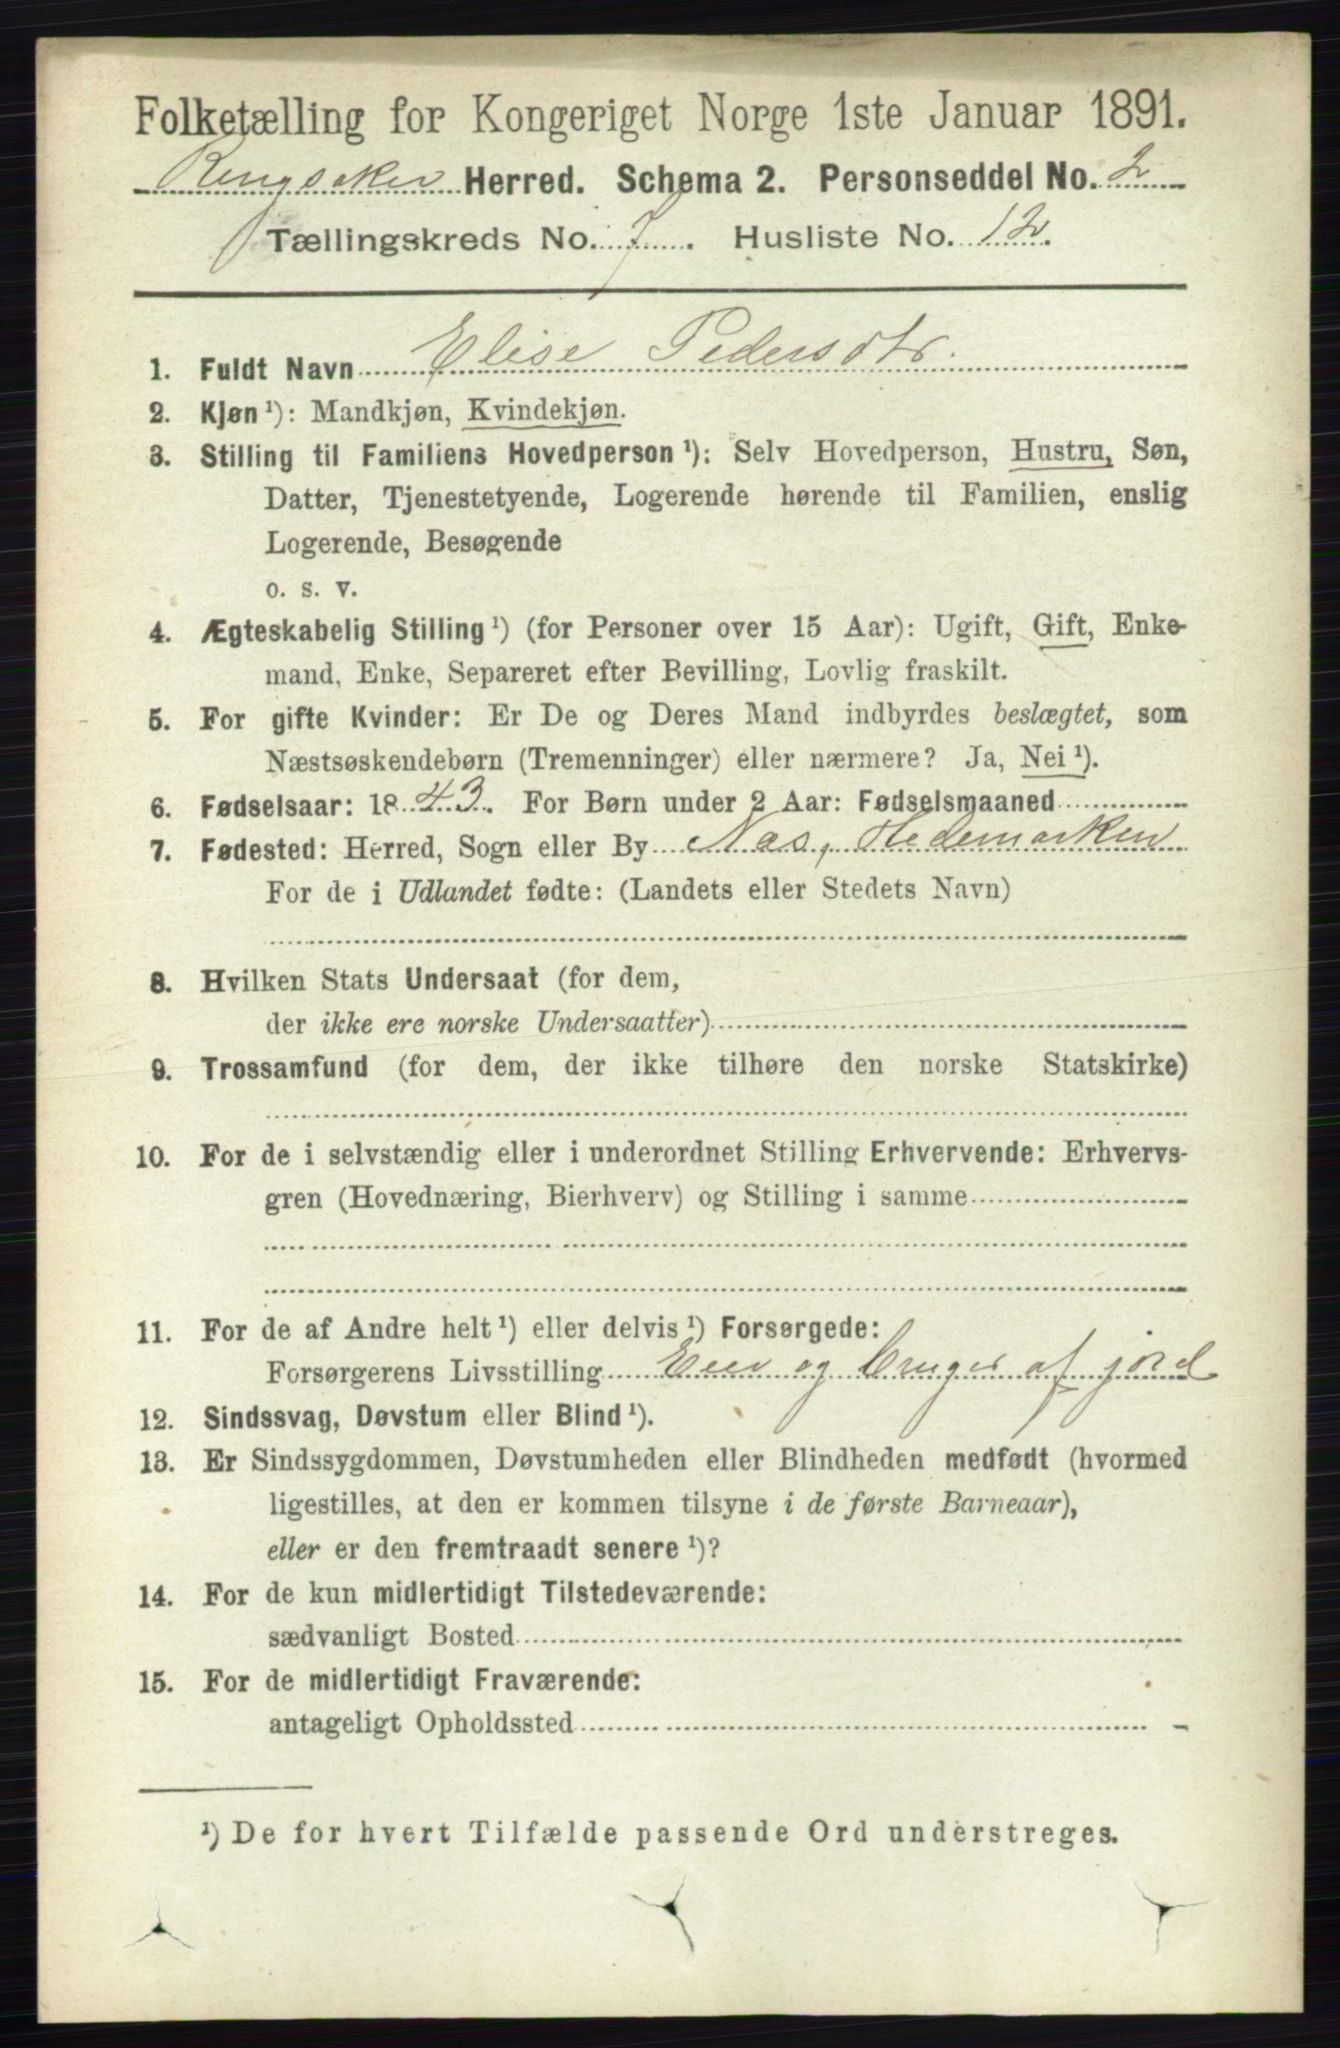 Folketælling for Kongeriget Norge 1ste Januar 1891.
Ringsaker Herred. Schema 2. Personseddel No. 2
Tællingskreds No. 7. Husliste No. 12.
1. Fuldt Navn Elise Pedersdtr.
2. Kjøn ¹): Mandkjøn, Kvindekjøn.
3. Stilling til Familiens Hovedperson ¹): Selv Hovedperson, Hustru, Søn,
Datter, Tjenestetyende, Logerende hørende til Familien, enslig
Logerende, Besøgende
o. s. v.
4. Ægteskabelig Stilling ¹) (for Personer over 15 Aar): Ugift, Gift, Enke-
mand, Enke, Separeret efter Bevilling, Lovlig fraskilt.
5. For gifte Kvinder: Er De og Deres Mand indbyrdes beslægtet, som
Næstsøskendebørn (Tremenninger) eller nærmere? Ja, Nei ¹).
6. Fødselsaar: 1843. For Børn under 2 Aar: Fødselsmaaned
7. Fødested: Herred, Sogn eller By Næs, Hedemarken
For de i Udlandet fødte: (Landets eller Stedets Navn)
8. Hvilken Stats Undersaat (for dem,
der ikke ere norske Undersaatter)
9. Trossamfund (for dem, der ikke tilhøre den norske Statskirke)
10. For de i selvstændig eller i underordnet Stilling Erhvervende: Erhvervs-
gren (Hovednæring, Bierhverv) og Stilling i samme
11. For de af Andre helt ¹) eller delvis ¹) Forsørgede:
Forsørgerens Livsstilling Eier og bruger af jord
12. Sindssvag, Døvstum eller Blind ¹).
13. Er Sindssygdommen, Døvstumheden eller Blindheden medfødt (hvormed
ligestilles, at den er kommen tilsyne i de første Barneaar),
eller er den fremtraadt senere ¹)?
14. For de kun midlertidigt Tilstedeværende:
sædvanligt Bosted
15. For de midlertidigt Fraværende:
antageligt Opholdssted
¹) De for hvert Tilfælde passende Ord understreges.